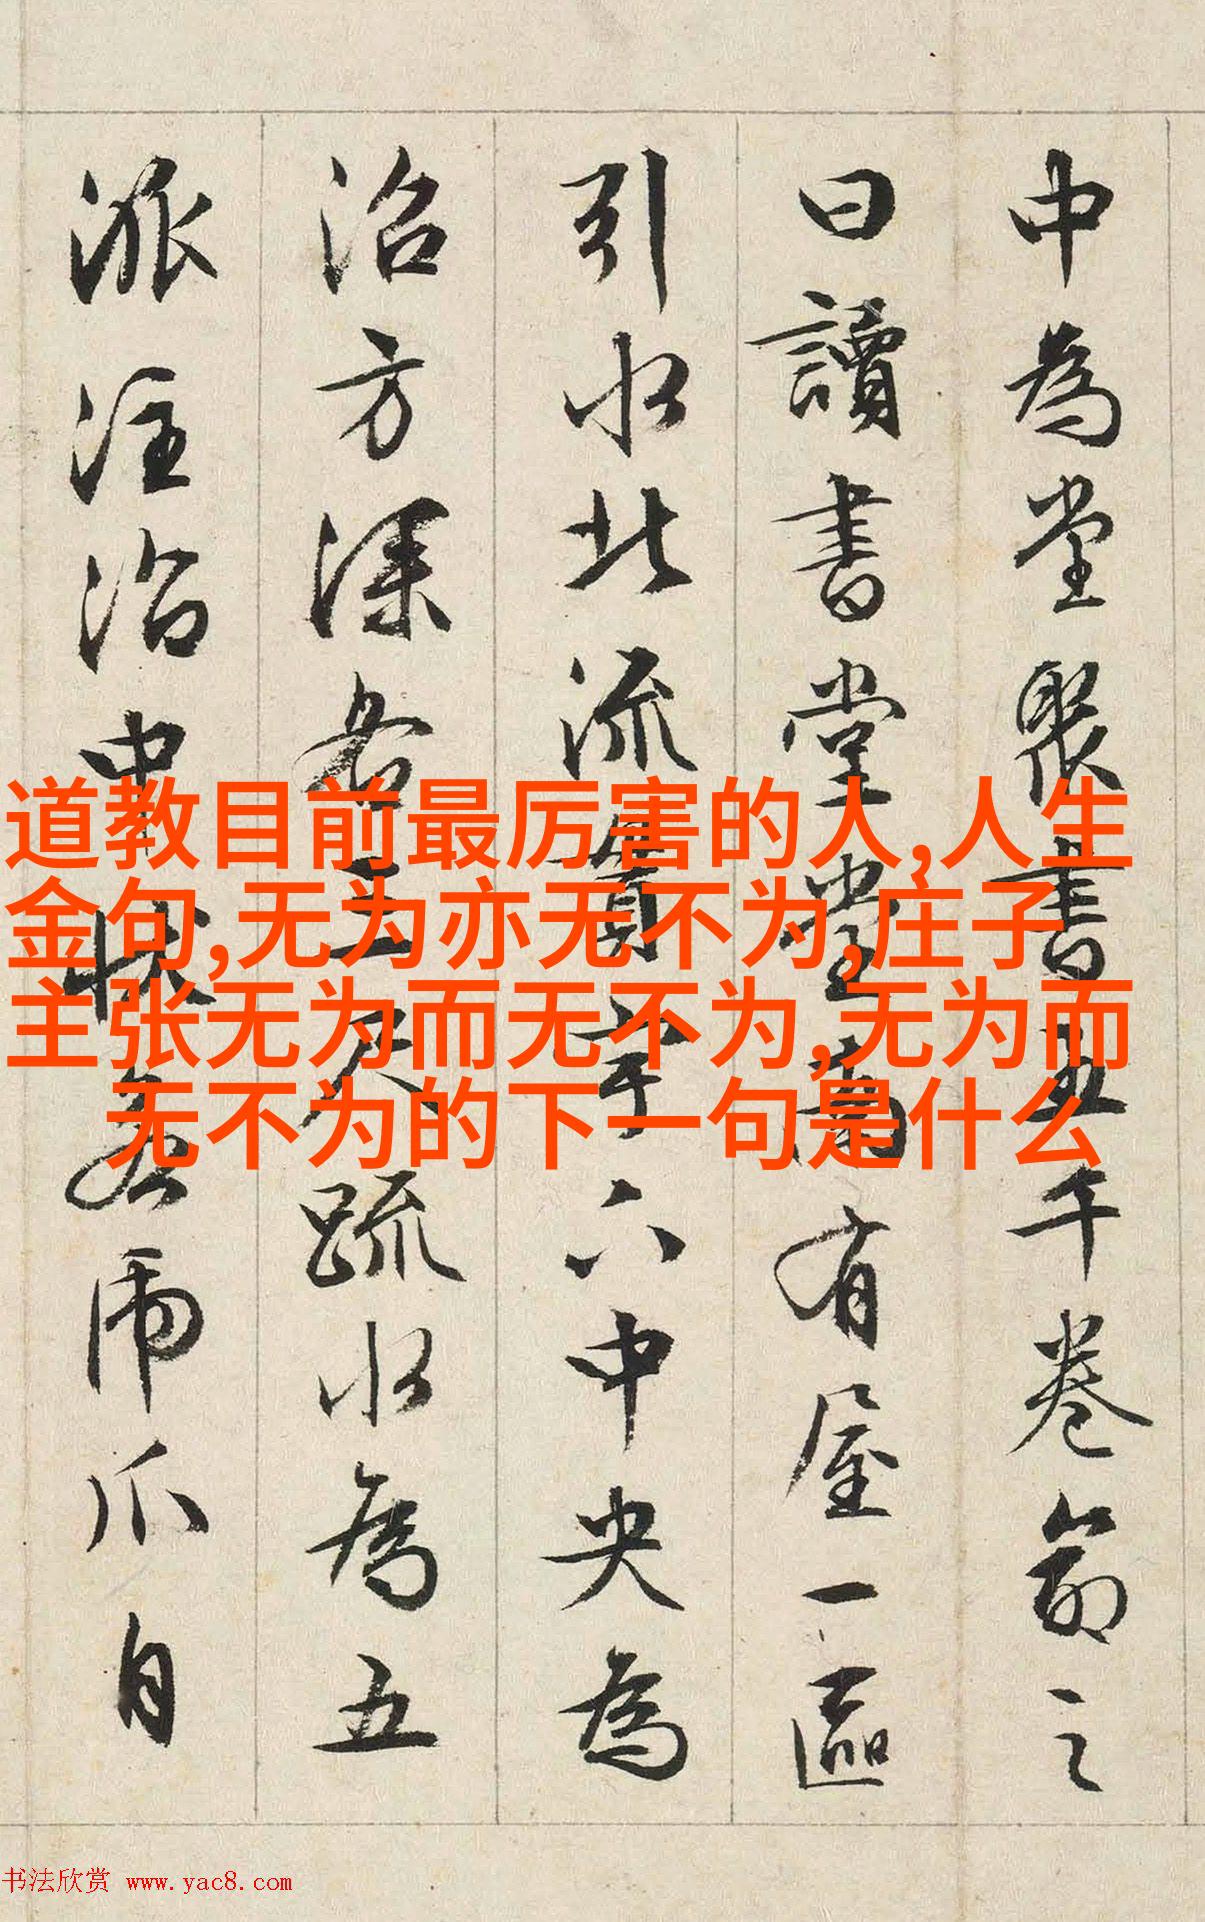 中為堂聚書五千卷命之
曰讀書堂堂南有屋一區
引水北流貫宇下中央為
沼方深各三尺疏水為五
派注沼中狀若虎爪自
道教目前最厉害的人,人生
金句,无为亦无不为,庄子
主张无为而无不为,无为而
无不为的下一句是什么
书法欣赏 www.yac8.com